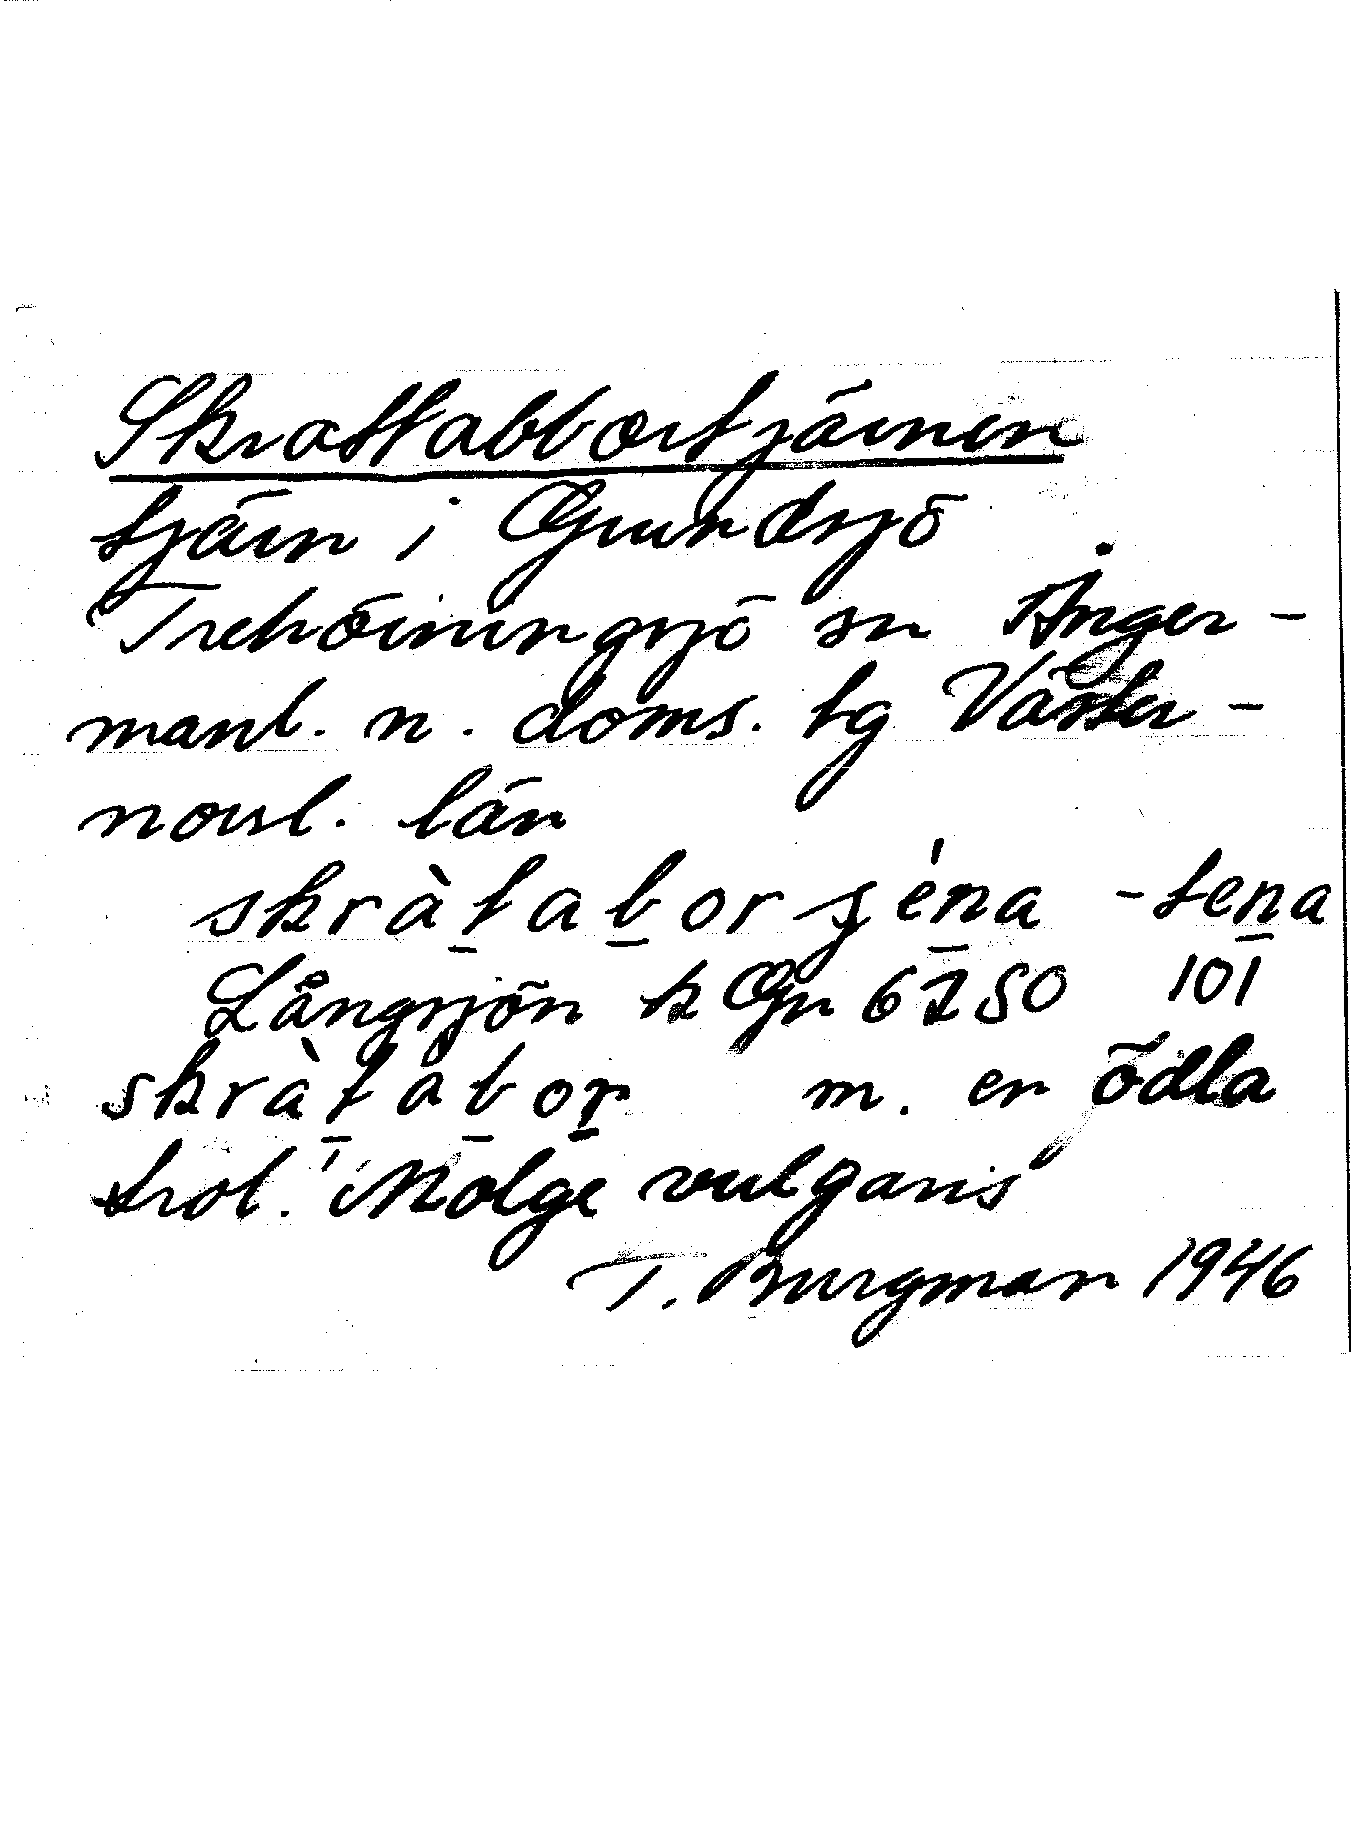 Skrattabbortjärnen
tjärn i Grundsjö
Trehörningsjö sn Ånger-
manl. n. doms. tg Väster-
norrl. län
skràtabor ʂéna - tena
Långsjön k Gr 6750 101
skràtabor m. en ödla
trol. Molge vulgaris
T. Burgman 1946